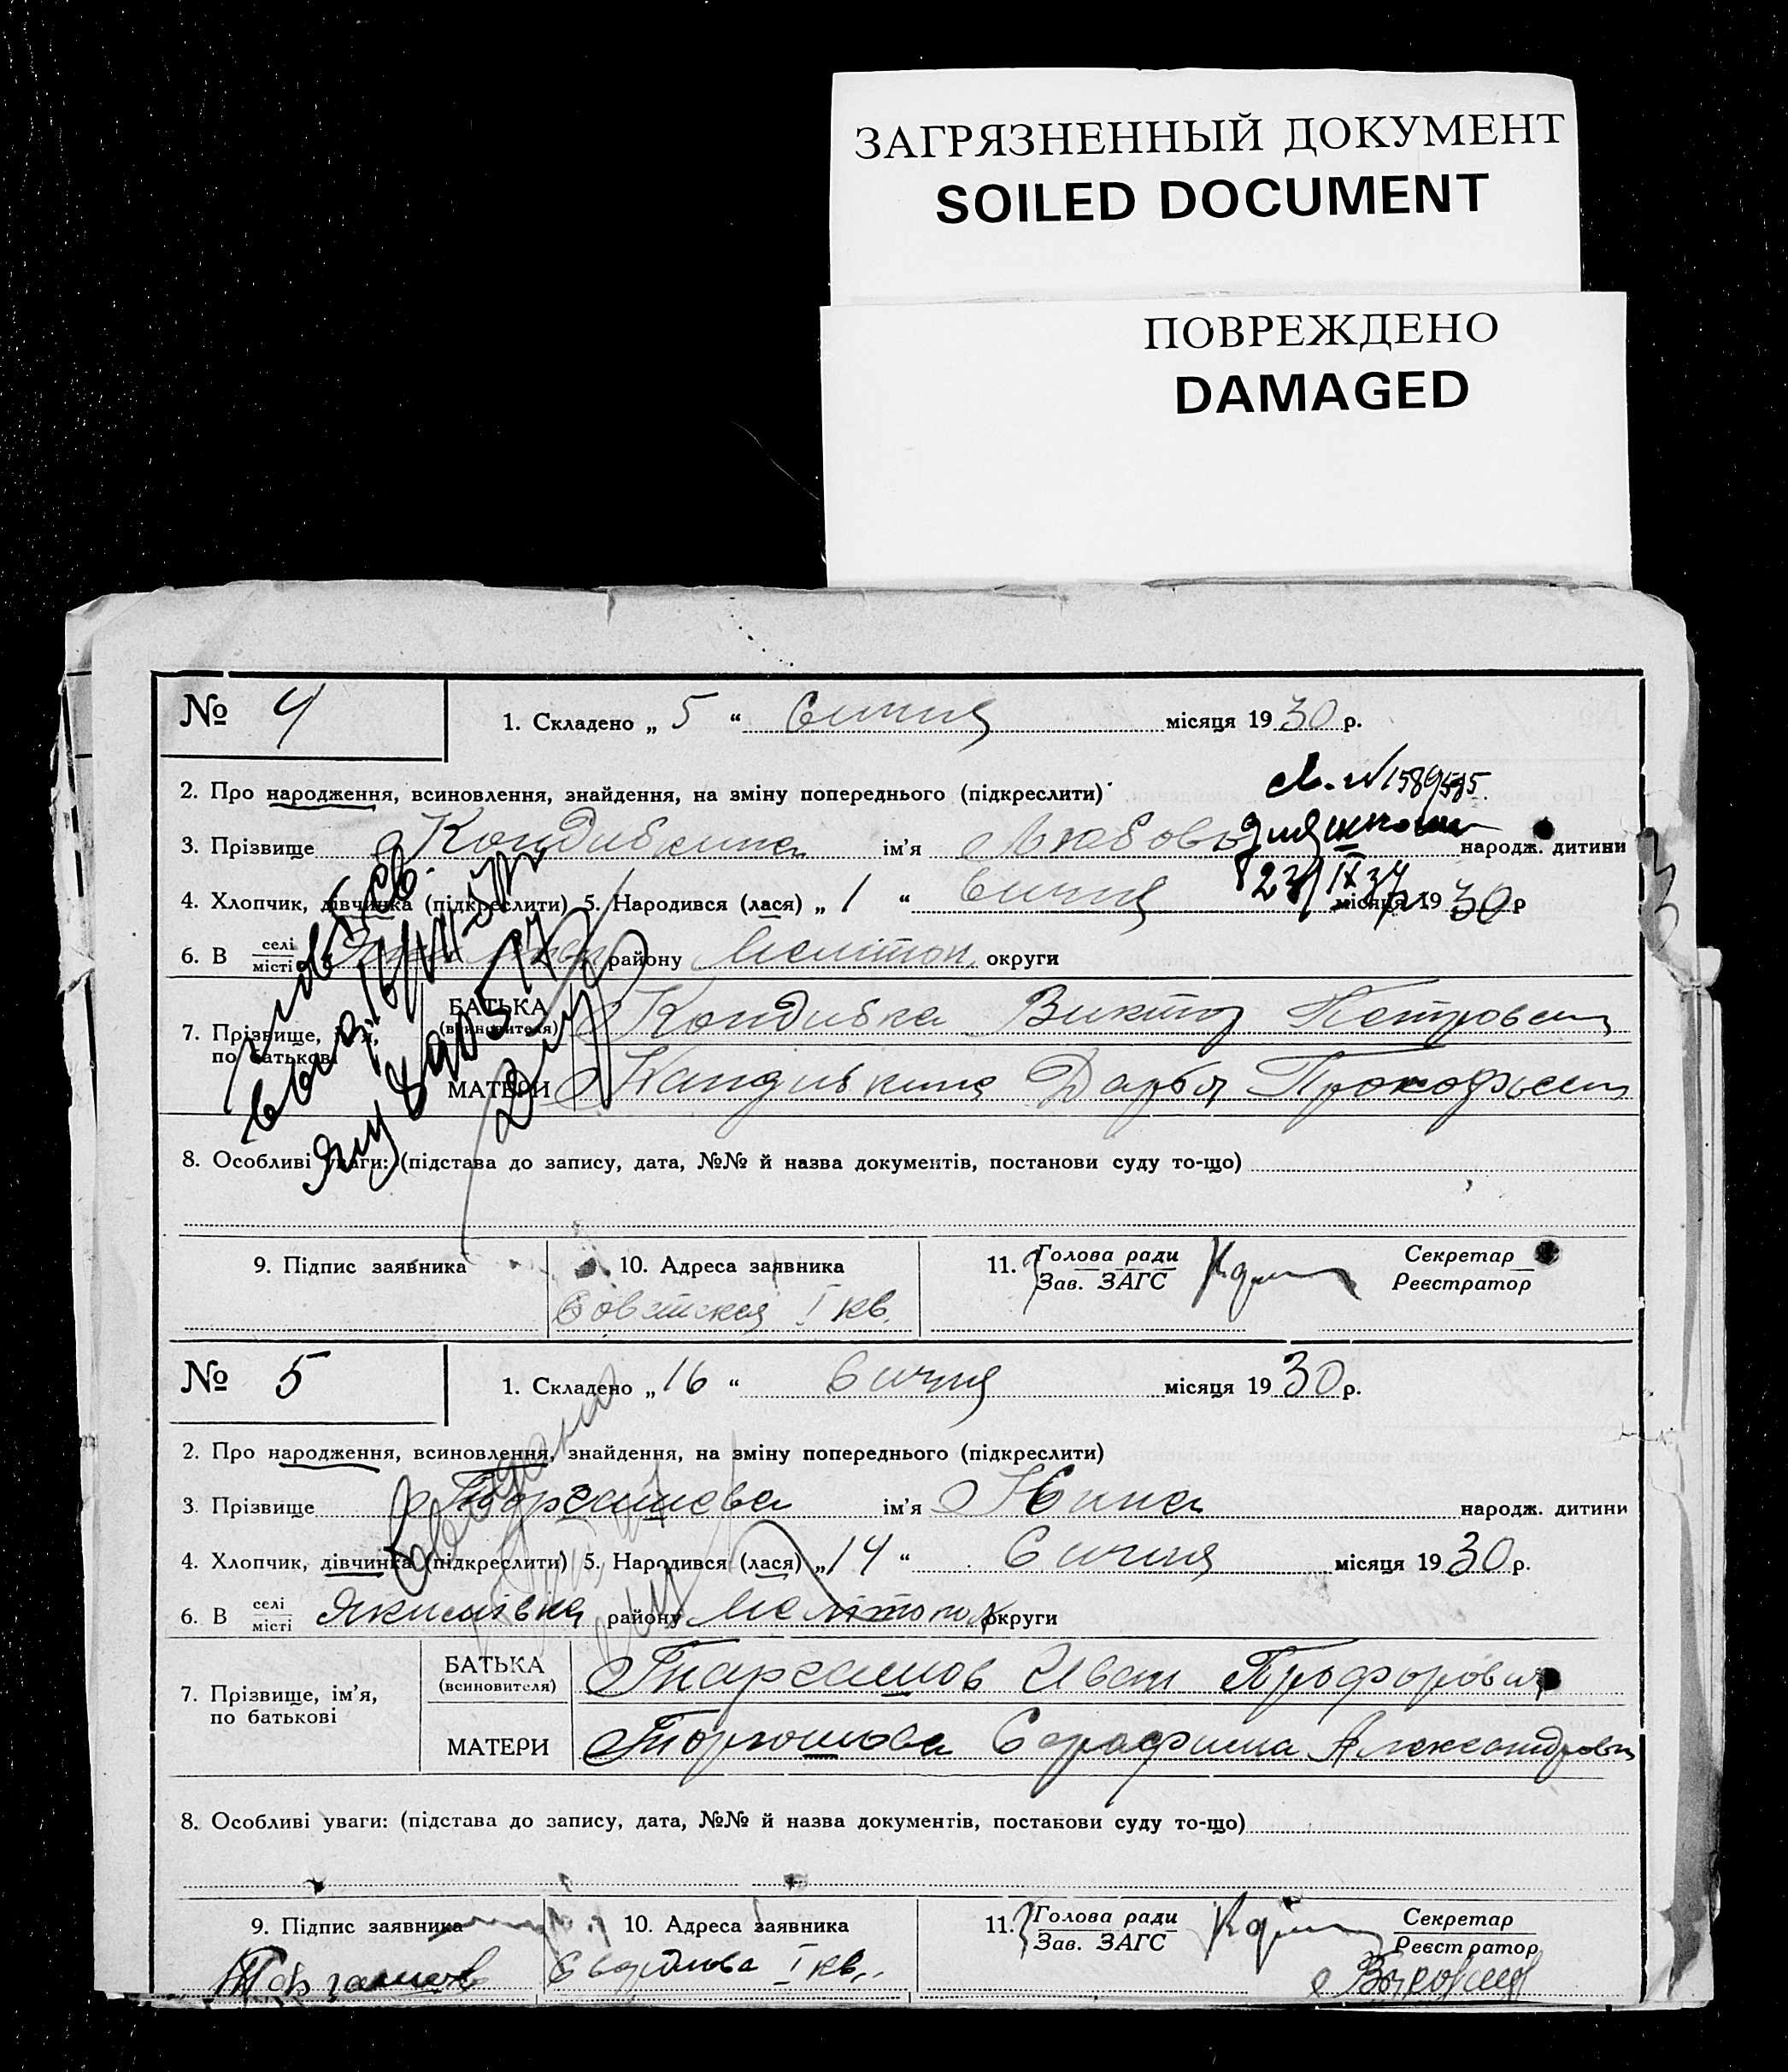 ЗАГРЯЗНЕННЫЙ ДОКУМЕНТ
SOILED DOCUMENT
ПОВРЕЖДЕНО
DAMAGED
№ 4
1. Складено „ 5 “ Січня місяця 19 30 р.
2. Про народження, всиновлення, знайдення, на зміну попереднього (підкреслити)
3. Прізвище Кондибкина ім’я Любовь народж. дитини
4. Хлопчик, дівчинка (підкреслити) 5. Народився (лася) „ 1 “ Січня місяця 19 30 р
6. В селі місті району Меліτοп. округи
7. Прізвище, ім’я, по батькові
БАТЬКА (всиновителя) Кондибка Виктор Петрович
МАТЕРИ Дарья Прокофьевн
8. Особливі уваги: (підстава до запису, дата, №№ й назва документів, постанови суду то-що)
9. Підпис заявника
10. Адреса заявника
Совітская I кв.
11. Голова ради Зав. ЗАГС
Секретар Реєстратор
№ 5
1. Складено „ 16 “ Січня місяця 19 30 р.
2. Про народження, всиновлення, знайдення, на зміну попереднього (підкреслити)
3. Прізвище Таргашева ім’я Нина народж. дитини
4. Хлопчик, дівчинка (підкреслити) 5. Народився (лася) „ 14 “ Січня місяця 19 30 р.
6. В селі місті Якимівка району Мелітопол округи
7. Прізвище, ім’я, по батькові
БАТЬКА (всиновителя) Таргашов Иван
МАТЕРИ Торгошова Серафима Александровн
8. Особливі уваги: (підстава до запису, дата, №№ й назва документів, постанови суду то-що)
9. Підпис заявника
Таргашов
10. Адреса заявника
Свердлова I кв.
11. Голова ради Зав. ЗАГС
Секретар Реєстратор